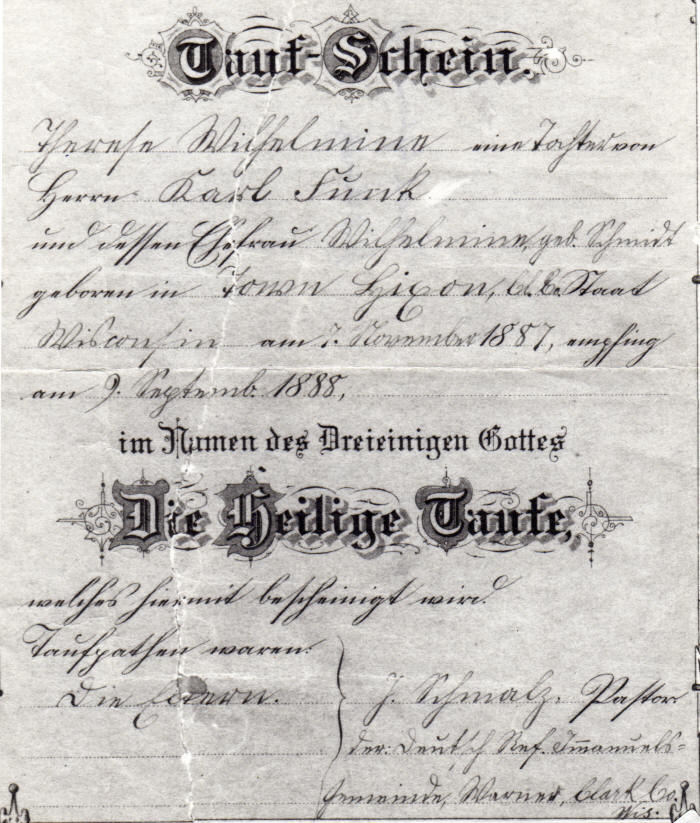 Tauf-Schein.
Therese Wilhelmine eine Tochter von
Herrn Karl Funk
und dessen Ehefrau Wilhelmine, geb. Schmidt
geboren in Town Hixon, Cl. C. Staat
Wisconsin am 7. November 1887, empfing
am 9. Septemb. 1888,
im Namen des Dreieinigen Gottes
Die Heilige Taufe,
welches hiermit bescheinigt wird.
Taufpathen waren:
Die Eltern.
J. Schmalz, Pastor
der: Deutsch Ref. Immanuels-
Gemeinde, Warner, Clark Co.
Wis.